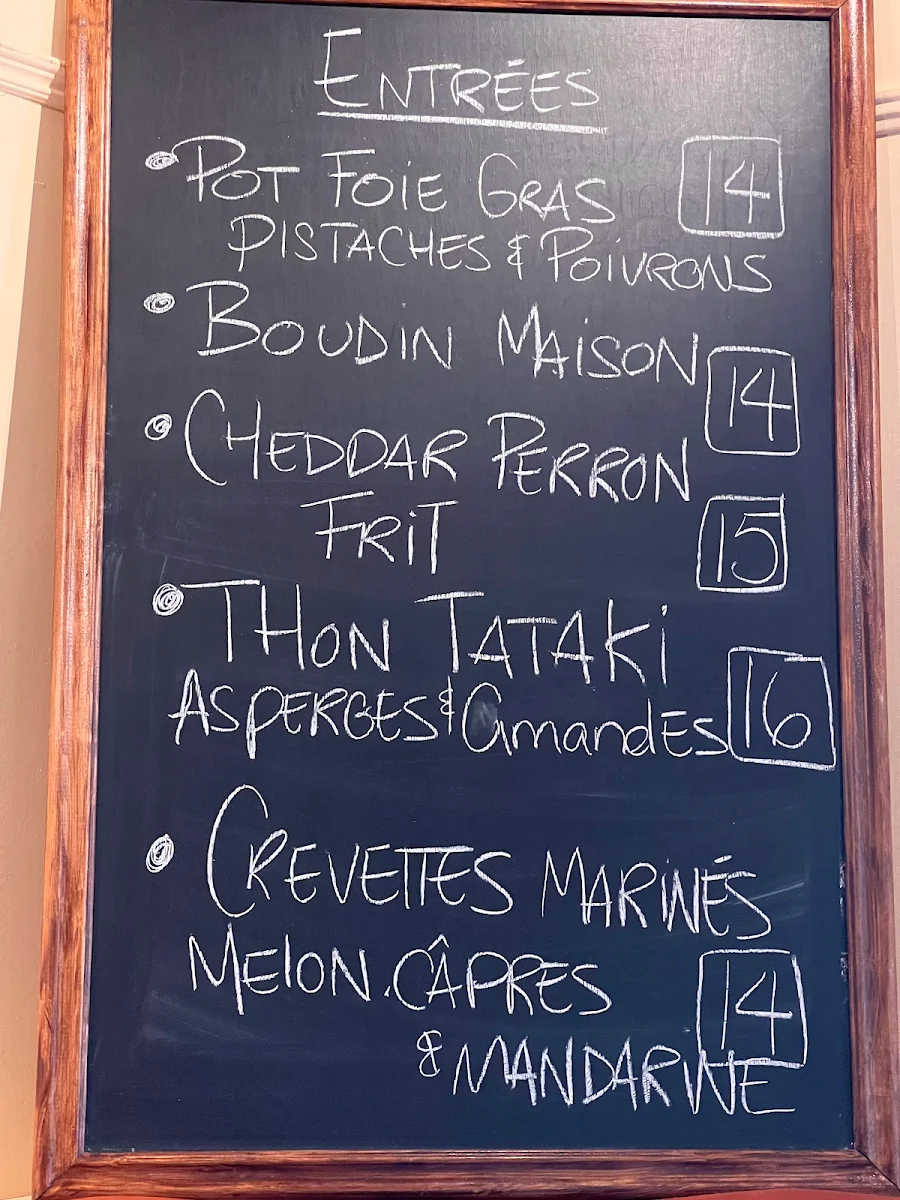 ENTRÉES
• POT FOIE GRAS 14
PISTACHES & POIVRONS
• BOUDIN MAISON
14
• CHEDDAR PERRON
FRIT 15
• THON TATAKI
ASPERGES & amandES 16
• CREVETTES MARINÉS
MELON, CÂPRES 14
& MANDARINE